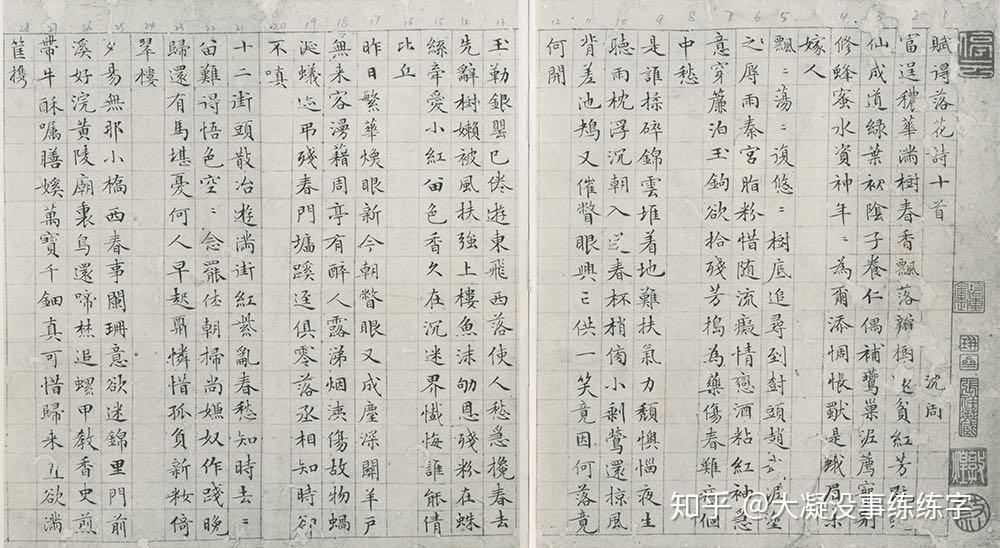 賦得落花詩十首 沈周
富逞穠華滿樹春香飄落瓣樹還貧紅芳
仙成道綠葉初陰子養仁偶補鶯巢泥薦
修蜂蜜水資神年〻為爾添惆悵獸是蛾眉未
嫁人
飄〻蕩〻復悠〻樹底追尋到封頭趙武泥塗
之辱雨秦宮脂粉惜随流癡情戀酒粘紅袖急
意穿簾泊玉鉤欲拾殘芳搗為藥傷春難療個
中愁
是誰揉碎錦雲堆着地難扶氣力頹懊惱夜生
聽雨枕浮沉朝入送春杯梢傍小剥鶯還掠風
背差池鴂又催瞥眼興亡供一笑竟因何落竟
何開
玉勒銀罌已倦遊東飛西落使人愁急攙春去
先辭樹嬾被風扶強上樓魚沫劬恩殘粉在蛛
絲牽愛小紅留色香久在沉迷界懺悔誰能倩
比丘
昨日繁華煥眼新今朝瞥眼又成塵深關羊戶
無来客漫藉周亭有醉人露涕烟洟傷故物蝸
涎蟻迹弔殘春門墻蹊逕俱零落丞相知時卻
不嗔
十二街頭散冶遊滿街紅紫亂春愁知時去〻
留難得悟色空〻念罷休朝掃尚嫌奴作踐晚
歸還有馬堪憂何人早起鬲憐惜孤負新粧倚
翠樓
夕昜無那小橋西春事闌珊意欲迷錦里門前
溪好浣黄陵廟裏鳥還啼焚追螺甲教香史煎
帶牛酥嘱膳媛萬寶千鈿真可惜歸来直欲滿
筐携
知乎 @大凝没事练练字